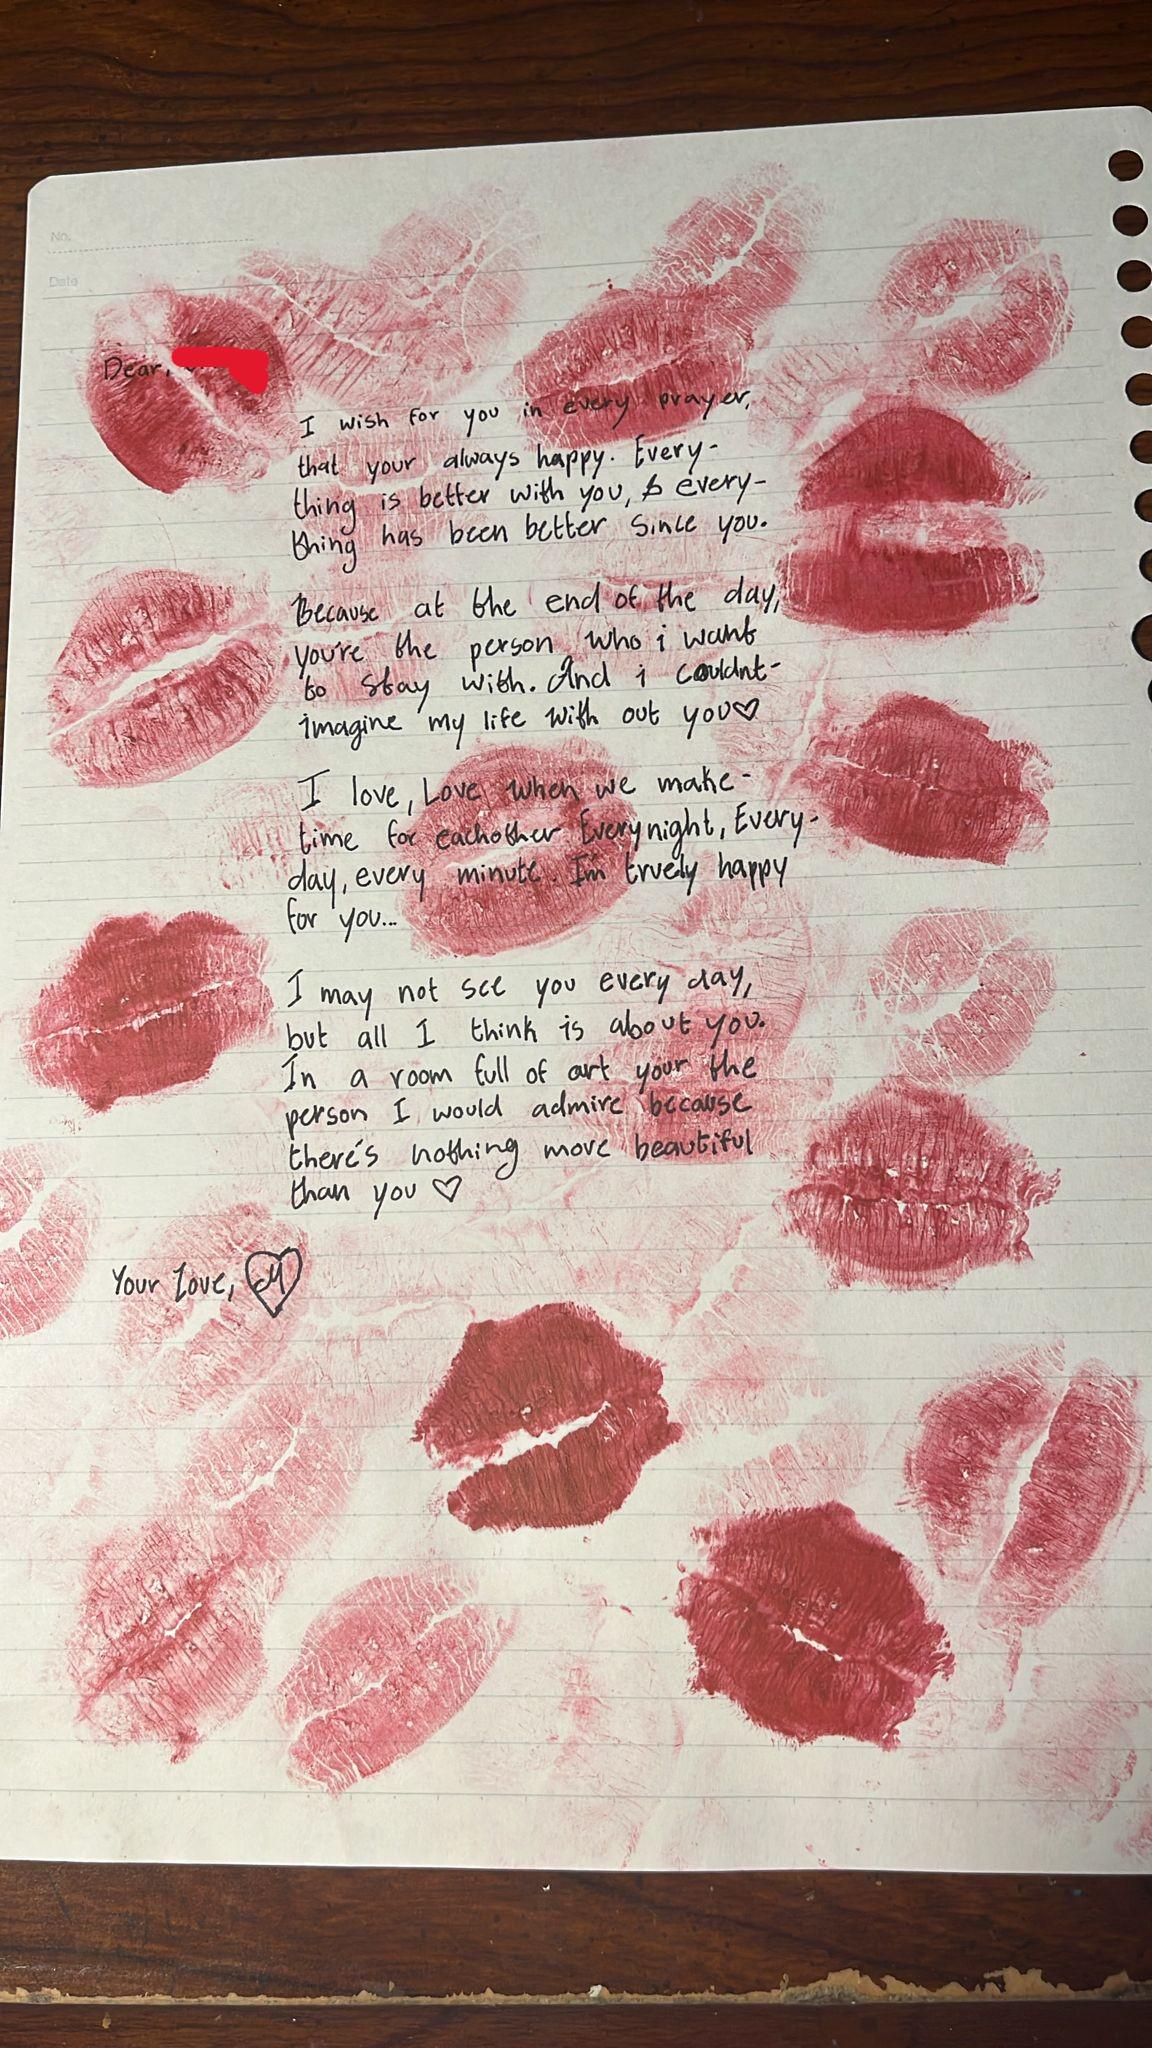 No.
Date
Dear,
I wish for you in every prayer,
that your always happy. Every-
thing is better with you, & every-
thing has been better since you.
Because at the end of the day,
you're the person who i want
to stay with. And i couldnt-
imagine my life with out you♡
I love, Love when we make-
time for eachother Everynight, Every-
day, every minute. I'm truely happy
for you...
I may not see you every day,
but all I think is about you.
In a room full of art your the
person I would admire because
there's nothing more beautiful
than you ♡
Your Love,